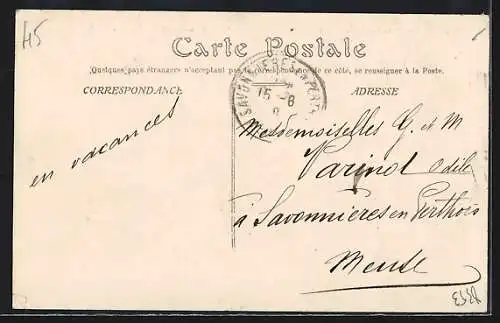 45
Carte Postale
Quelques pays étrangers n'acceptant pas la correspondance de ce côté, se renseigner à la Poste.
CORRESPONDANCE
ADRESSE
SAVONNIERES EN PERTHOIS
15 -8
en vacances
Mesdemoiselles G. et M
Varinot Odile
à Savonnières en Perthois
Meuse